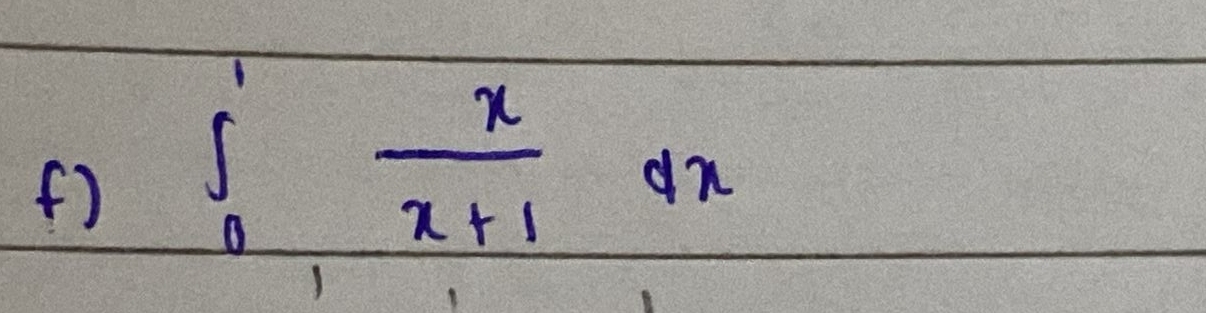 f) ∫₀¹ x/(x+1) dx